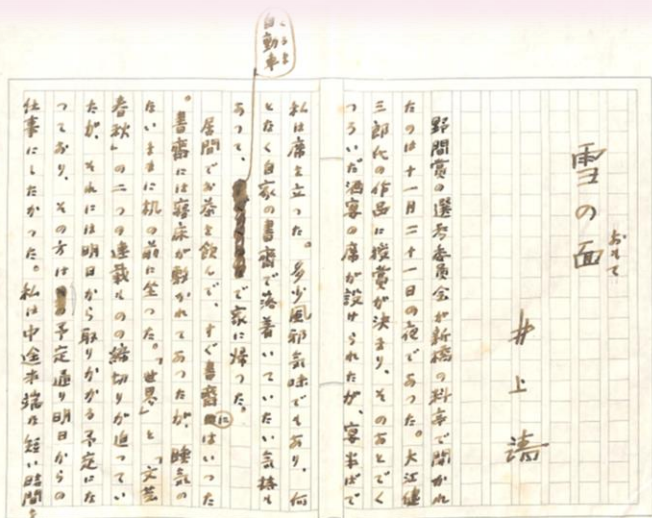 雪の面
おもて
井上靖
野間賞の選考委員会が新橋の料亭で開かれ
たのは十一月二十一日の夜であった。大江健
三郎氏の作品に授賞が決まり、そのあとでく
つろいだ酒宴の席が設けられたが、宴半ばで
私は席を立った。多少風邪気味でもあり、何
となく自家の書斎で落着いていたい気持も
くるま
自動車
あって、で家に帰った。
居間でお茶を飲んで、すぐ書斎にはいった
。書斎には寝床が敷かれてあったが、睡気の
ないままに机の前に坐った。「世界」と「文芸
春秋」の二つの連載ものの締切りが迫ってい
たが、それには明日から取りかかる予定にな
っており、その方は予定通り明日からの
仕事にしたかった。私は中途半端な短い時間を